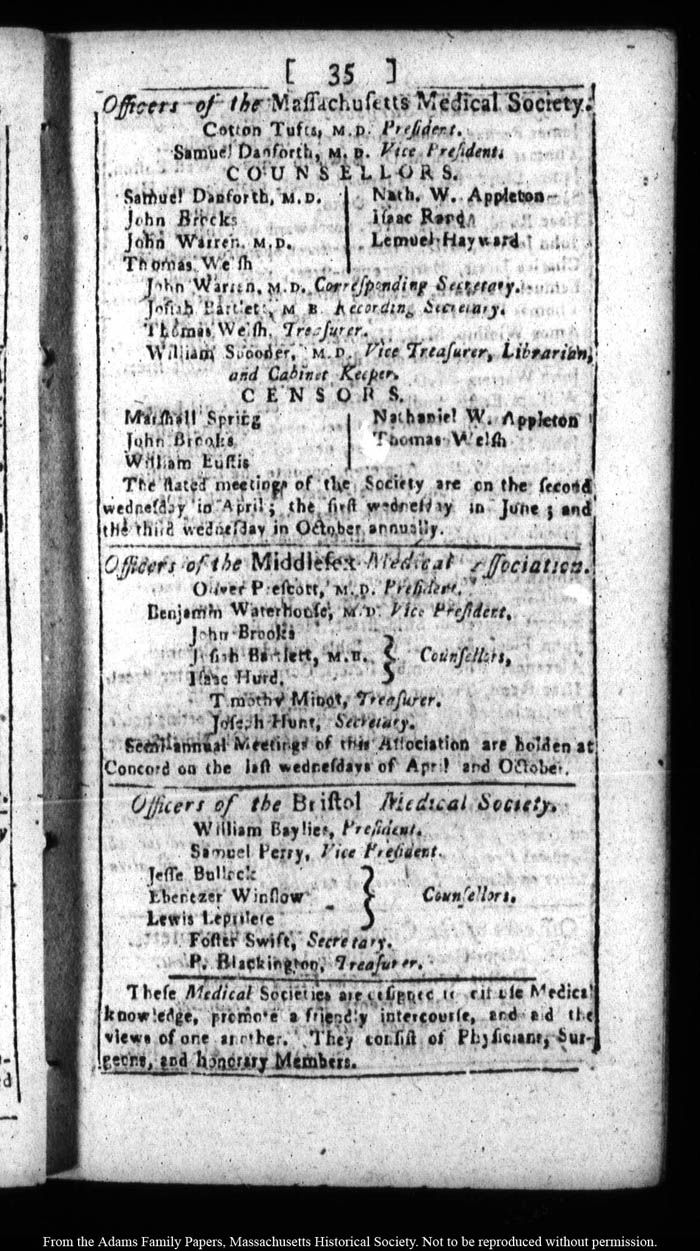 [ 35 ]
Officers of the Maſſachuſetts Medical Society.
Cotton Tufts, M.D. Preſident.
Samuel Danforth, M. D. Vice Preſident.
COUNSELLORS.
Samuel Danforth, M.D. Nath. W. Appleton
John Brooks Iſaac Rand
John Warren, M.D. Lemuel Hayward
Thomas Welſh
John Warren, M.D. Correſponding Secretary.
Joſiah Bartlett, M B. Recording Secretary.
Thomas Welſh, Treaſurer.
William Spooner, M.D. Vice Treaſurer, Librarian,
and Cabinet Keeper.
CENSORS.
Marſhall Spring Nathaniel W. Appleton
John Brooks Thomas Welſh
William Euſtis
The ſtated meetings of the Society are on the ſecond
wedneſday in April; the firſt wedneſday in June; and
the third wedneſday in October annually.
Officers of the Middleſex Medical Aſſociation.
Oliver Preſcott, M.D. Preſident.
Benjamin Waterhouſe, M.D. Vice Preſident.
John Brooks
Joſiah Bartlett, M.B. } Counſellors,
Iſaac Hurd.
Timothy Minot, Treaſurer.
Joſeph Hunt, Secretary.
Semi-annual Meetings of this Aſſociation are holden at
Concord on the laſt wedneſdays of April and October.
Officers of the Briſtol Medical Society.
William Baylies, Preſident.
Samuel Perry, Vice Preſident.
Jeſſe Bullock
Ebenezer Winſlow } Counſellors.
Lewis Leprilete
Foſter Swift, Secretary.
P. Blackington, Treaſurer.
Theſe Medical Societies are deſigned to diffuſe Medical
knowledge, promote a friendly intercourſe, and aid the
views of one another. They conſiſt of Phyſicians, Sur-
geons, and honorary Members.
From the Adams Family Papers, Massachusetts Historical Society. Not to be reproduced without permission.